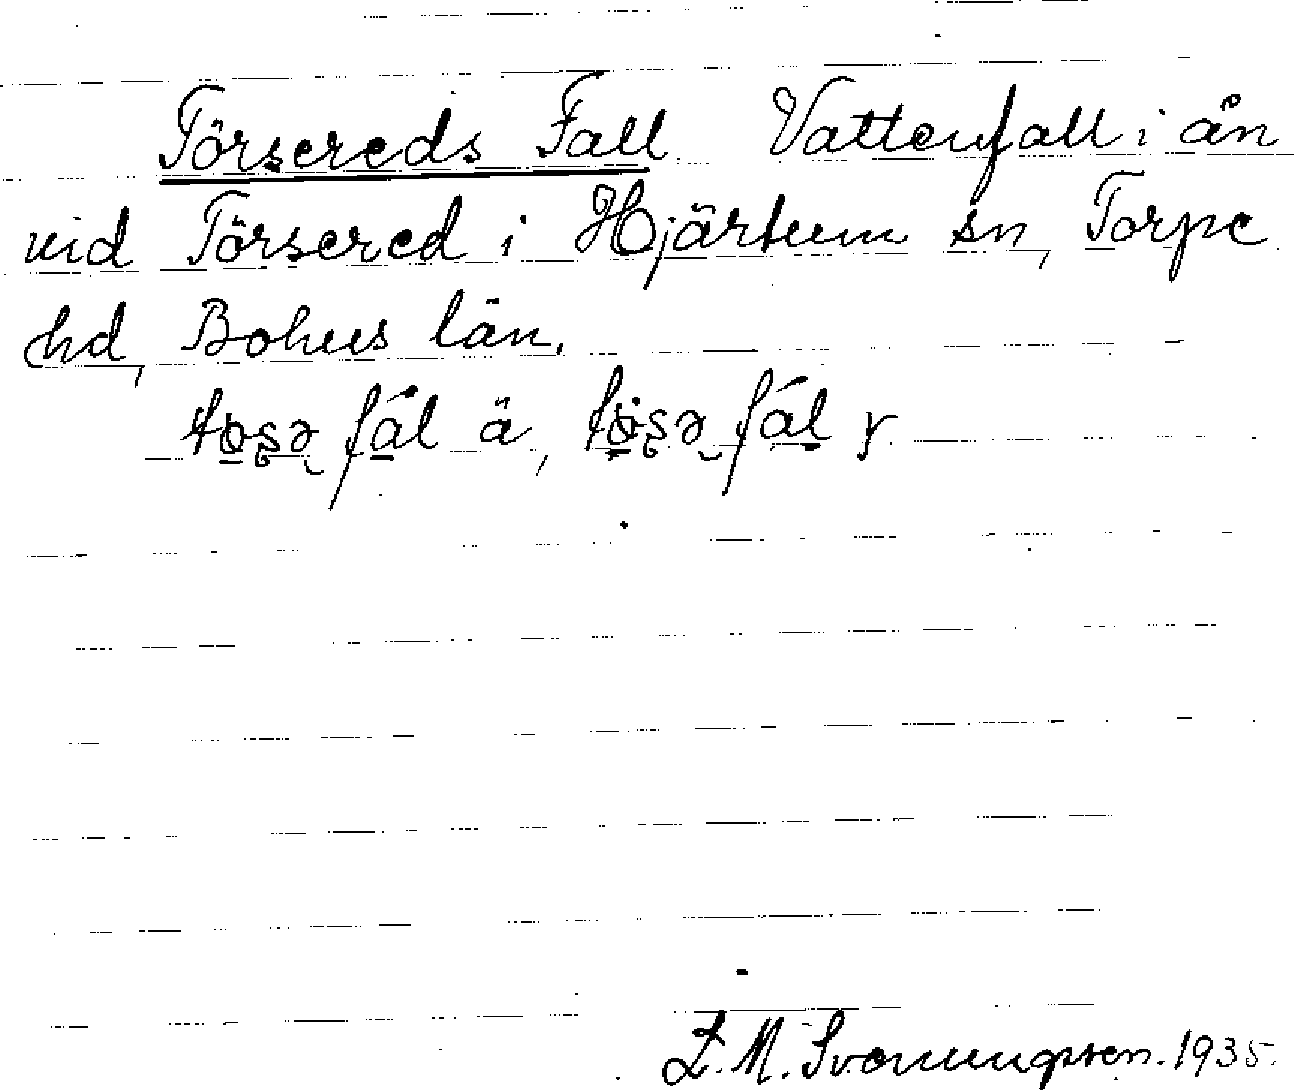 Törsereds Fall Vattenfall i ån
vid Törsered i Hjärtum sn, Torpe
hd, Bohus län.
fål ä, fål y.
M. Svenungsson. 1935.